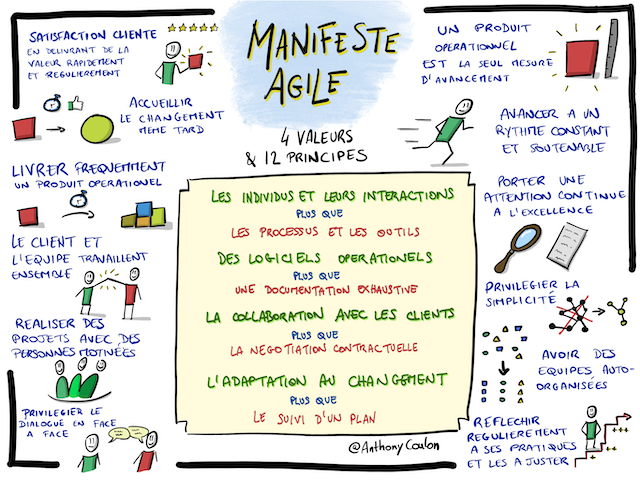 MANIFESTE
AGILE
4 VALEURS
& 12 PRINCIPES
SATISFACTION CLIENTE
EN DELIVRANT DE LA
VALEUR RAPIDEMENT
ET REGULIEREMENT
ACCUEILLIR
LE CHANGEMENT
MEME TARD
LIVRER FREQUEMMENT
UN PRODUIT OPERATIONEL
LE CLIENT ET
L'EQUIPE TRAVAILLENT
ENSEMBLE
REALISER DES
PROJETS AVEC DES
PERSONNES MOTIVÉES
PRIVILEGIER LE
DIALOGUE EN FACE
A FACE
LES INDIVIDUS ET LEURS INTERACTIONS
PLUS QUE
LES PROCESSUS ET LES OUTILS
DES LOGICIELS OPERATIONELS
PLUS QUE
UNE DOCUMENTATION EXHAUSTIVE
LA COLLABORATION AVEC LES CLIENTS
PLUS QUE
LA NEGOTIATION CONTRACTUELLE
L'ADAPTATION AU CHANGEMENT
PLUS QUE
LE SUIVI D'UN PLAN
@Anthony Coulon
UN PRODUIT
OPERATIONNEL
EST LA SEUL MESURE
D'AVANCEMENT
AVANCER A UN
RYTHME CONSTANT
ET SOUTENABLE
PORTER UNE
ATTENTION CONTINUE
A L'EXCELLENCE
PRIVILEGIER LA
SIMPLICITÉ
AVOIR DES
EQUIPES AUTO-
ORGANISÉES
REFLECHIR
REGULIEREMENT
A SES PRATIQUES
ET LES AJUSTER